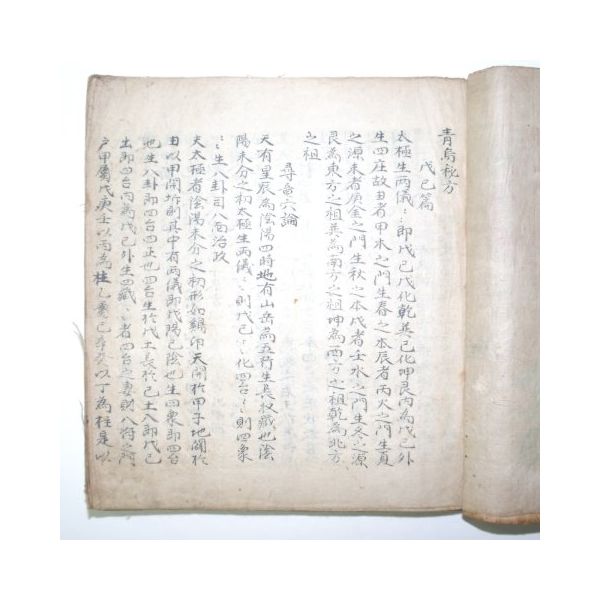 青烏秘方
戊己篇
太極生兩儀〻即戊己戊化乾巽己化坤艮內為戊己外
生四庄故由者甲木之門生春之本辰者丙火之門生夏
之源未者庚金之門生秋之本戌者壬水之門生冬之源
艮為東方之祖巽為南方之祖坤為西方之祖乾為北方
之祖
尋龍六論
天有星辰為陰陽四時地有山岳為五行生長收藏也陰
陽未分之初太極生兩儀〻則戊己〻化四台〻則四象
〻生八卦司八門治政
夫太極者陰陽未分之初形如鷄卵天開於甲子地闢於
由以甲開坼則其中有兩儀即戊陽己陰也生四象即四台
也生八卦即四台四正也四台生於戊土長於己土入即戊己
出即四台內為戊己外生四藏〻者四台之妻則八將之門
戶甲屬戊庚壬以丙為柱乙屬己辛癸以丁為柱是以